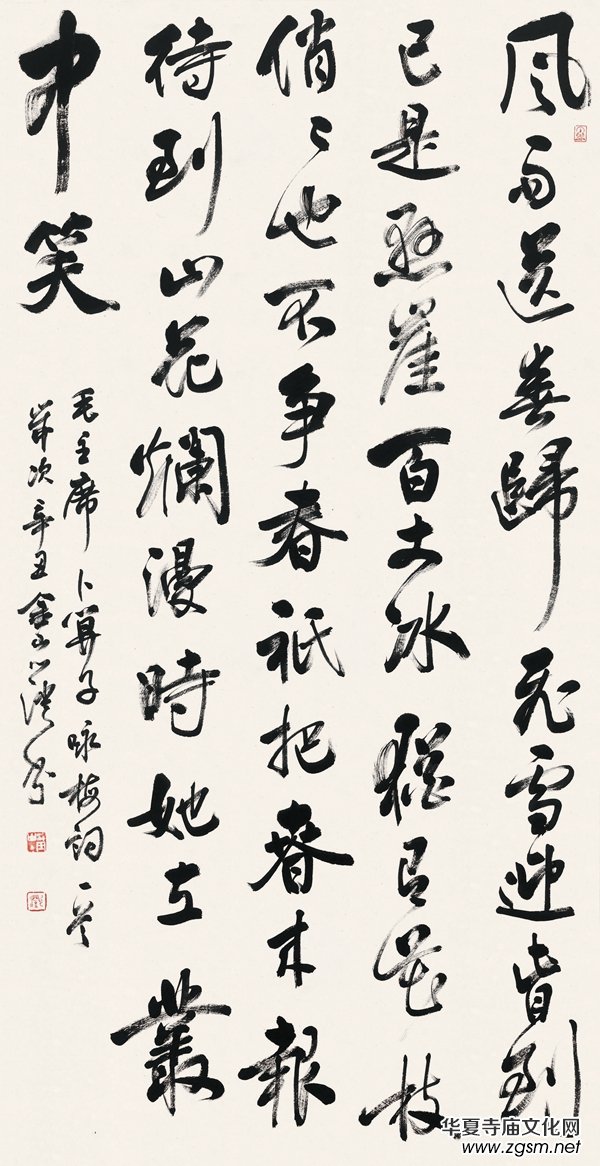 风雨送春歸飞雪迎春到
已是懸崖百丈冰猶有花枝
俏〻也不争春祇把春来報
待到山花爛漫時她在叢
中笑
毛主席卜算子咏梅詞一首
歲次辛丑
华夏寺庙文化网
www.zgsm.net